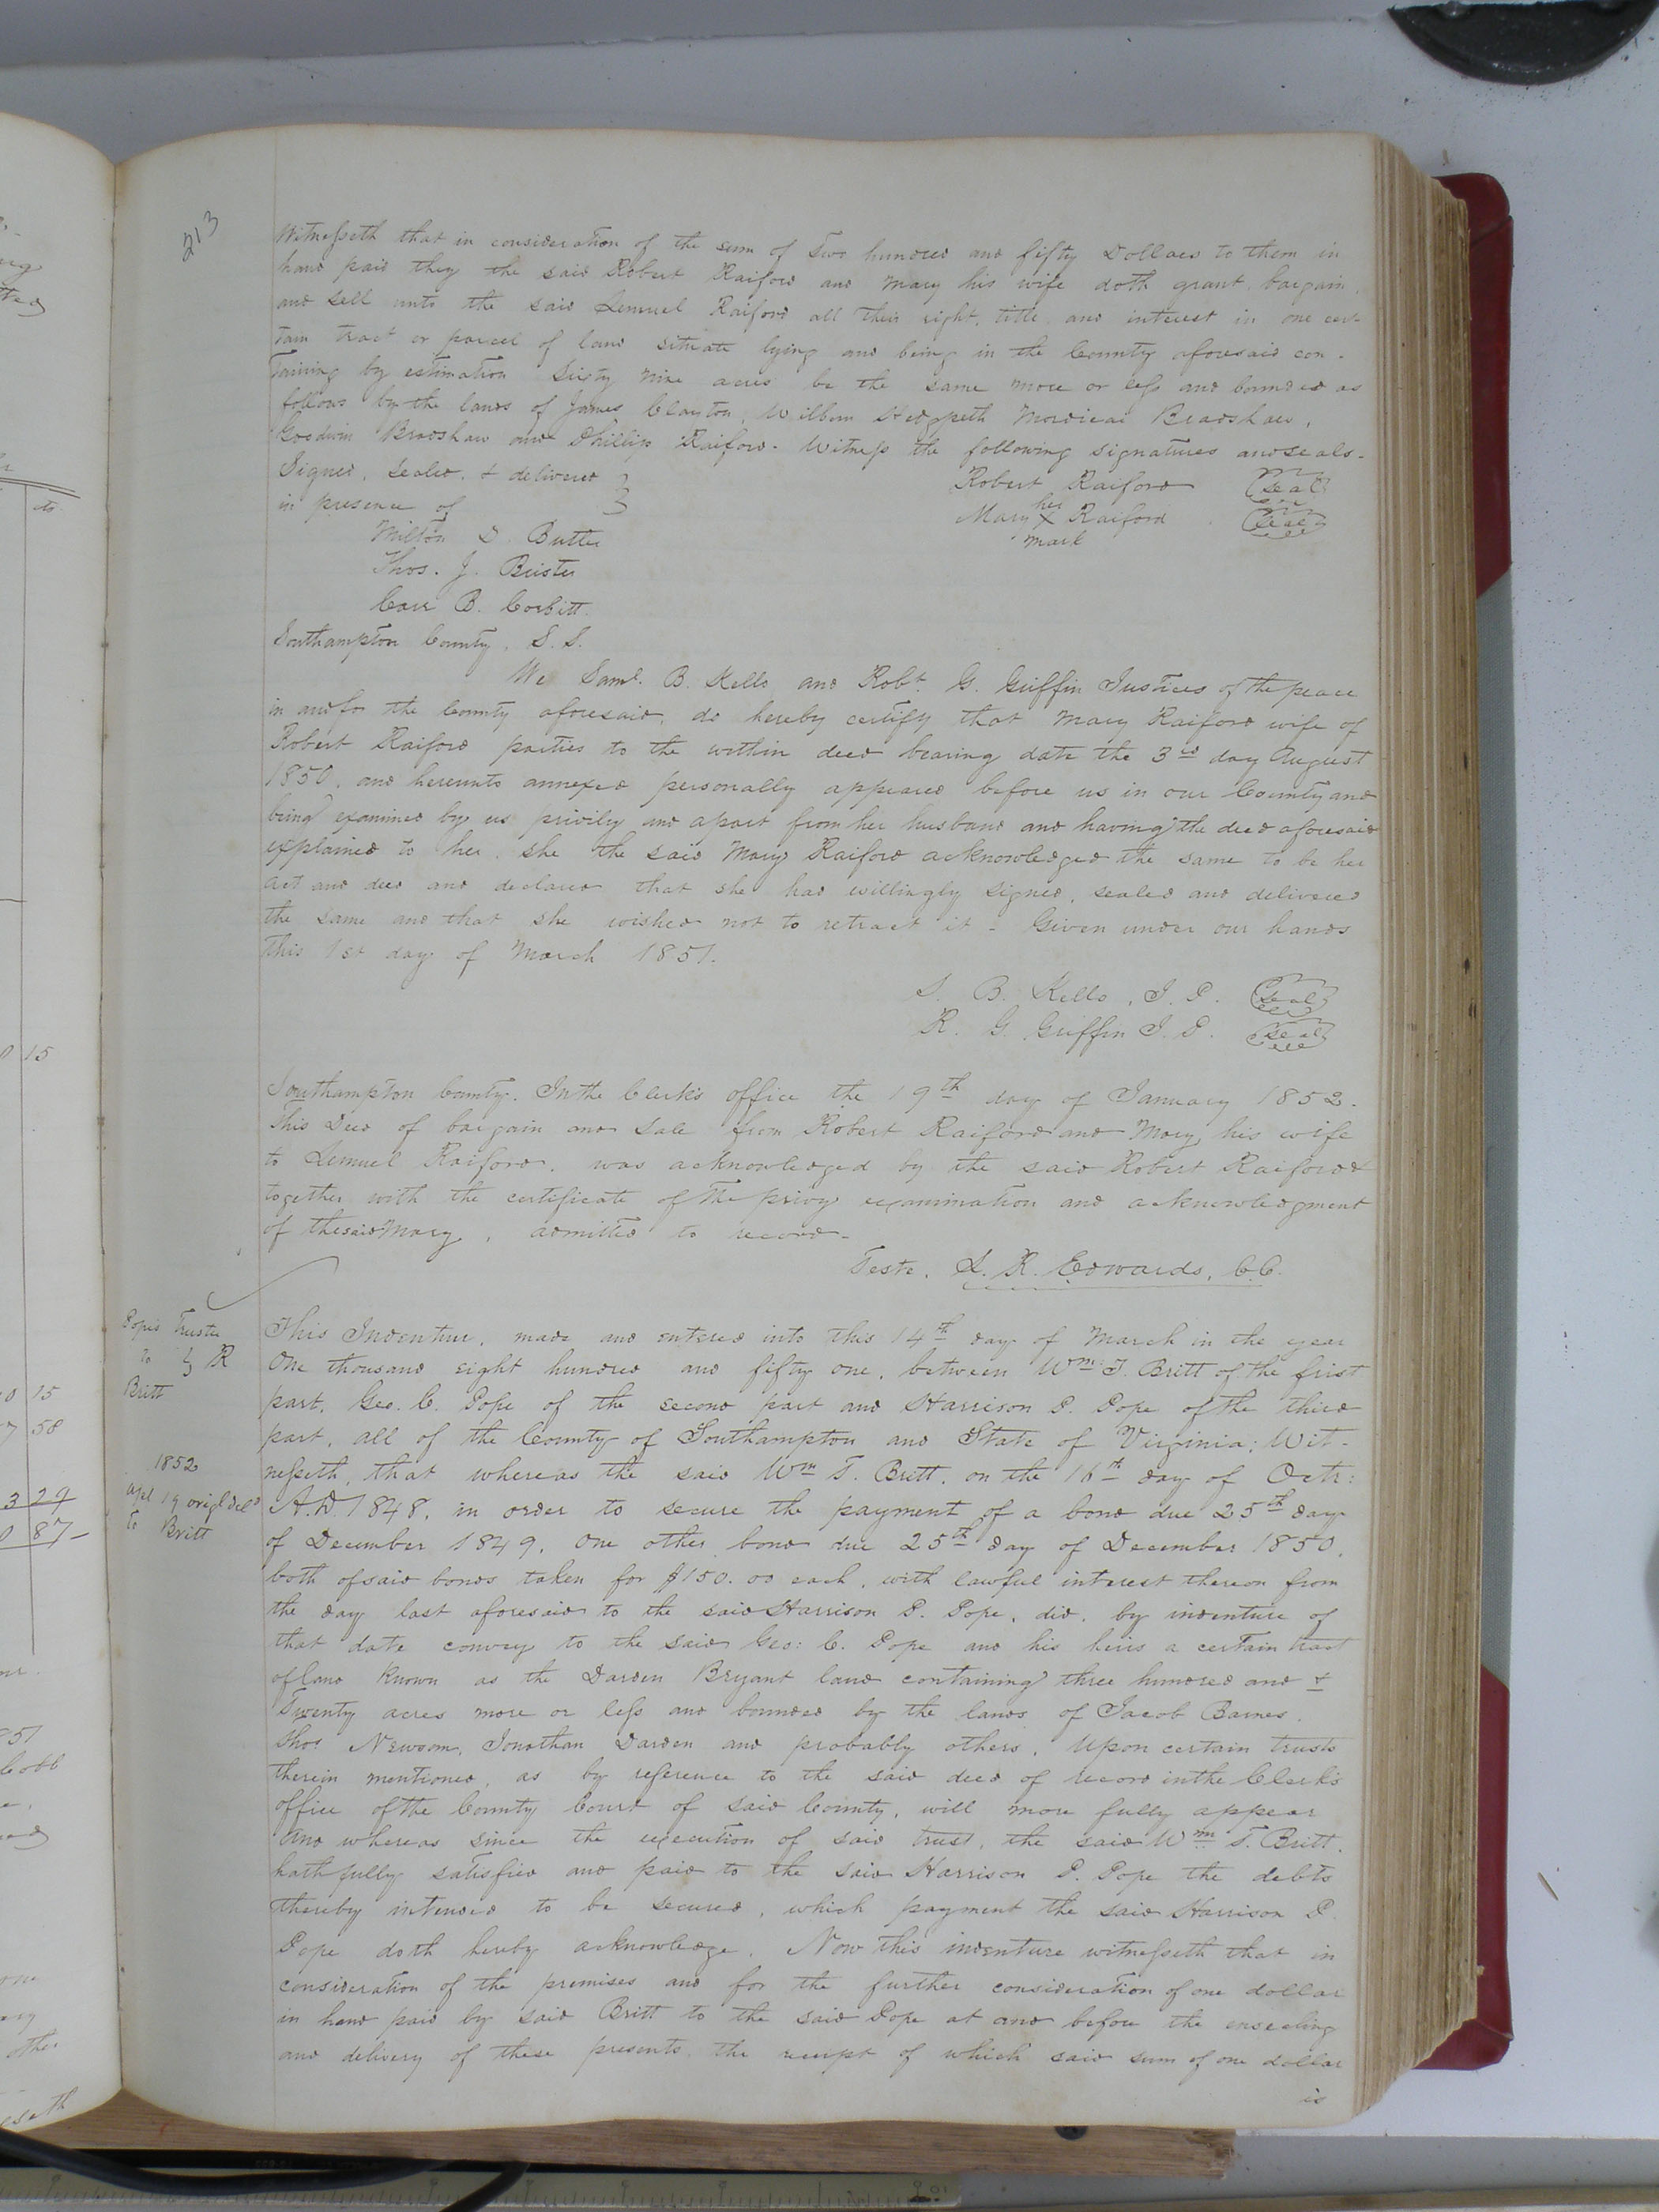 213
Witnesseth that in consideration of the sum of Two hundred and fifty Dollars to them in
hand paid they the said Robert Raiford and Mary his wife doth grant, bargain
and sell unto the said Lemuel Raiford all their right, title and interest in one cer-
tain tract or parcel of land situate lying and being in the County aforesaid con-
taining by estimation Sixty Nine acres be the same more or less and bounded as
follows by the lands of James Clayton, Wilburn Hedgpeth Mordicai Bradshaw,
Goodwin Bradshaw and Phillip Raiford. Witness the following signatures and seals.
Signed, sealed, & delivered
in presence of
Robert Raiford (Seal)
her
Mary X Raiford (Seal)
mark
Milton D. Butler
Thos. J. Brister
Carr B. Corbitt.
Southampton County, S. S.
We Saml. B. Kello and Robt. G. Griffin Justices of the peace
in and for the County aforesaid, do hereby certify that Mary Raiford wife of
Robert Raiford parties to the within deed bearing date the 3rd day August
1850, and hereunto annexed personally appeared before us in our County and
being examined by us privily and apart from her husband and having the deed aforesaid
explained to her, she the said Mary Raiford acknowledged the same to be her
act and deed and declared that she had willingly signed, sealed and delivered
the same and that she wished not to retract it - Given under our hands
this 1st day of March 1851.
S. B. Kello, J. P. (Seal)
R. G. Griffin J. P. (Seal)
Southampton County. In the Clerk's office the 19th day of January 1852.
This Deed of bargain and sale from Robert Raiford and Mary, his wife
to Lemuel Raiford, was acknowledged by the said Robert Raiford &
together with the certificate of the privy examination and acknowledgment
of the said Mary, admitted to record -
Teste, L. R. Edwards, C.C.
Pope Trustee
to } R
Britt
1852
apl 19 origl deld
to Britt
This Indenture, made and entered into this 14th day of March in the year
One thousand eight hundred and fifty one, between Wm T. Britt of the first
part, Geo. C. Pope of the second part and Harrison P. Pope of the third
part, all of the County of Southampton and State of Virginia; Wit-
nesseth, that whereas the said Wm T. Britt, on the 16th day of Octr:
A.D. 1848, in order to secure the payment of a bond due 25th day
of December 1849, One other bond due 25th day of December 1850,
both of said bonds taken for $150.00 each, with lawful interest thereon from
the day last aforesaid to the said Harrison P. Pope, did, by indenture of
that date convey to the said Geo: C. Pope and his heirs a certain tract
of land known as the Darden Bryant land containing three hundred and &
Twenty acres more or less and bounded by the lands of Jacob Barnes,
Thos Newsom, Jonathan Darden and probably others, Upon certain trusts
therein mentioned, as by reference to the said deed of record in the Clerk's
office of the County Court of said County, will more fully appear
And whereas since the execution of said trust, the said Wm T. Britt,
hath fully satisfied and paid to the said Harrison P. Pope the debts
thereby intended to be secured, which payment the said Harrison P.
Pope doth hereby acknowledge. Now this indenture witnesseth that in
consideration of the premises and for the further consideration of one dollar
in hand paid by said Britt to the said Pope at and before the ensealing
and delivery of these presents the receipt of which said sum of one dollar
is